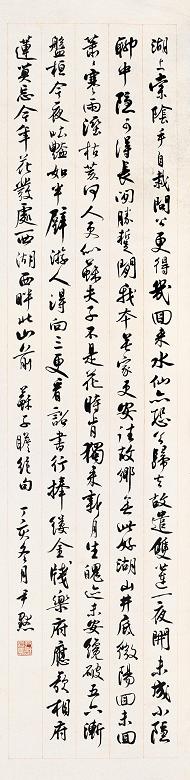 湖上棠陰手自栽問公更得幾回來水仙亦恐公歸去故遣雙蓮一夜開未成小隱
聊中隱可得長閑勝暫閑我本無家更安往故鄉無此好湖山井底微陽回未回
蕭蕭寒雨溼枯荄何人更似蘇夫子不是花時肯獨來新月生魄迹未安纔破五六漸
盤桓今夜吐豔如半璧游人得向三更看詔書行捧縷金牋樂府應歌相府
蓮莫忘今年花發處西湖西畔此山前 蘇子瞻絕句 丁亥冬月 尹默